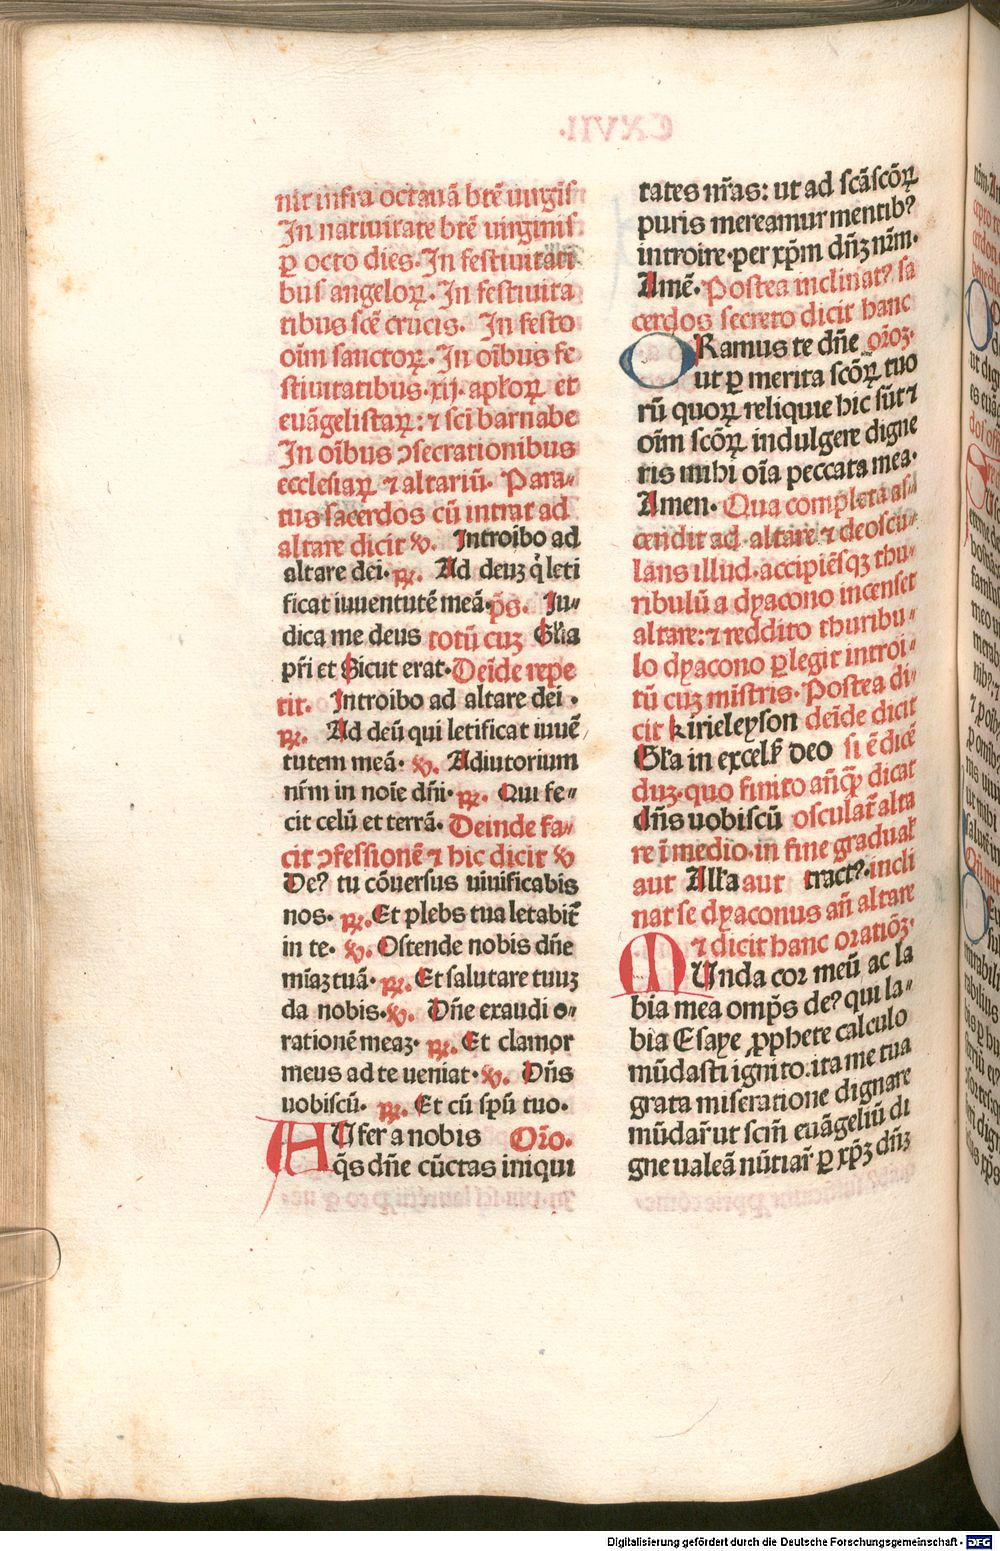 nit infra octauā btē uirgis̄
In natiuitate btē uirginis
ꝑ octo dies. In festiuitati
bus angeloꝝ. In festiuita
tibus scē crucis. In festo
oīm sanctoꝝ. In oībus fe
stiuitatibus. xij. apl'oꝝ et
euāgelistaꝝ: ⁊ sci barnabe
In oībus ↄsecrationibus
ecclesiaꝝ ⁊ altariū. Para-
tus sacerdos cū intrat ad
altare dicit ℣. Introibo ad
altare dei. ℞. Ad deuꝫ q̇ leti
ficat iuuentutē meā. ps̄. Iu-
dica me deus totū cuꝫ Gl'ia
pr̄i et Sicut erat. Deīde repe
tit. Introibo ad altare dei.
℞. Ad deū qui letificat iuuē
tutem meā. ℣. Adiutorium
nr̄m in noīe dn̄i. ℞. Qui fe-
cit celū et terrā. Deinde fa-
cit ↄfessionē ⁊ hic dicit ℣
De? tu cōuersus uiuificabis
nos. ℞. Et plebs tua letabit̄
in te. ℣. Ostende nobis dn̄e
mīaꝫ tuā. ℞. Et salutare tuuꝫ
da nobis. ℣. Dn̄e exaudi o-
rationē meaꝫ. ℞. Et clamor
meus ad te ueniat. ℣. Dn̄s
uobiscū. ℞. Et cū spū tuo.
AUfer a nobis Orō.
q̄s dn̄e cūctas iniqui
tates nr̄as: ut ad scāscōꝝ
puris mereamur mentib?
introire. per xp̄m dn̄ꝫ nr̄m.
Amē. Postea inclinat? sa
cerdos secreto dicit hanc
ORamus te dn̄e orōꝫ.
ut ꝑ merita scōꝝ tuo
rū quoꝝ reliquie hic sūt ⁊
oīm scōꝝ indulgere digne
ris mihi oīa peccata mea.
Amen. Qua completa as-
cendit ad altare ⁊ deoscu-
lans illud. accipiēsqꝫ thu-
ribulū a dyacono incenset
altare: ⁊ reddito thuribu-
lo dyacono ꝑlegit introi-
tū cuꝫ mīstris. Postea di-
cit kirieleyson deīde dicit
Gl'a in excel' deo si ē dicē
duꝫ. quo finito an̄qꝫ dicat
dn̄s uobiscū osculat̄ alta
re ī medio. in fine gradual'
aut All'a aut tract?. incli
nat se dyaconus an̄ altare
⁊ dicit hanc oratiōꝫ.
MUnda cor meū ac la
bia mea omp̄s de? qui la-
bia Esaye ꝓphete calculo
mūdasti ignito. ita me tua
grata miseratione dignare
mūdar' ut scm̄ euāgeliū di
gne ualeā nūtiar' ꝑ xp̄ꝫ dn̄ꝫ
Digitalisierung gefördert durch die Deutsche Forschungsgemeinschaft - DFG